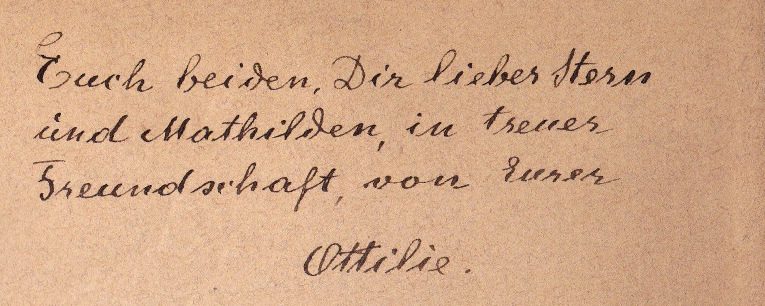 Euch beiden, Dir lieber Stern
und Mathilden, in treuer
Freundschaft, von Eurer
Ottilie.